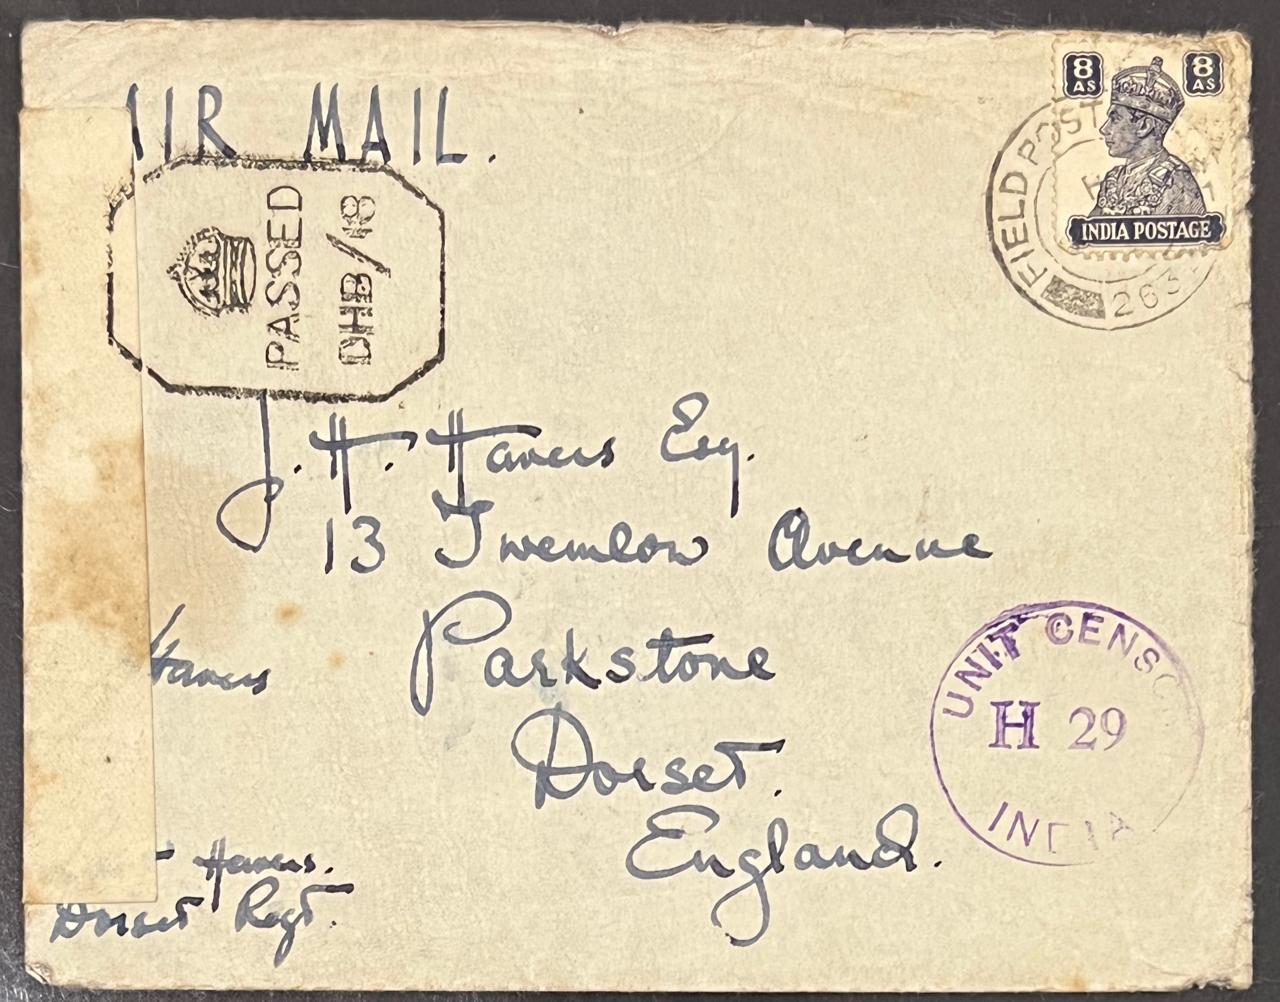 AIR MAIL.
8 AS 8 AS
INDIA POSTAGE
FIELD POST
263
PASSED
DHB/18
J. H. Havers Esq.
13 Twemlow Avenue
Parkstone
Dorset.
England.
Havers
UNIT CENSO
H 29
INDIA
Havers.
Dorset Regt.